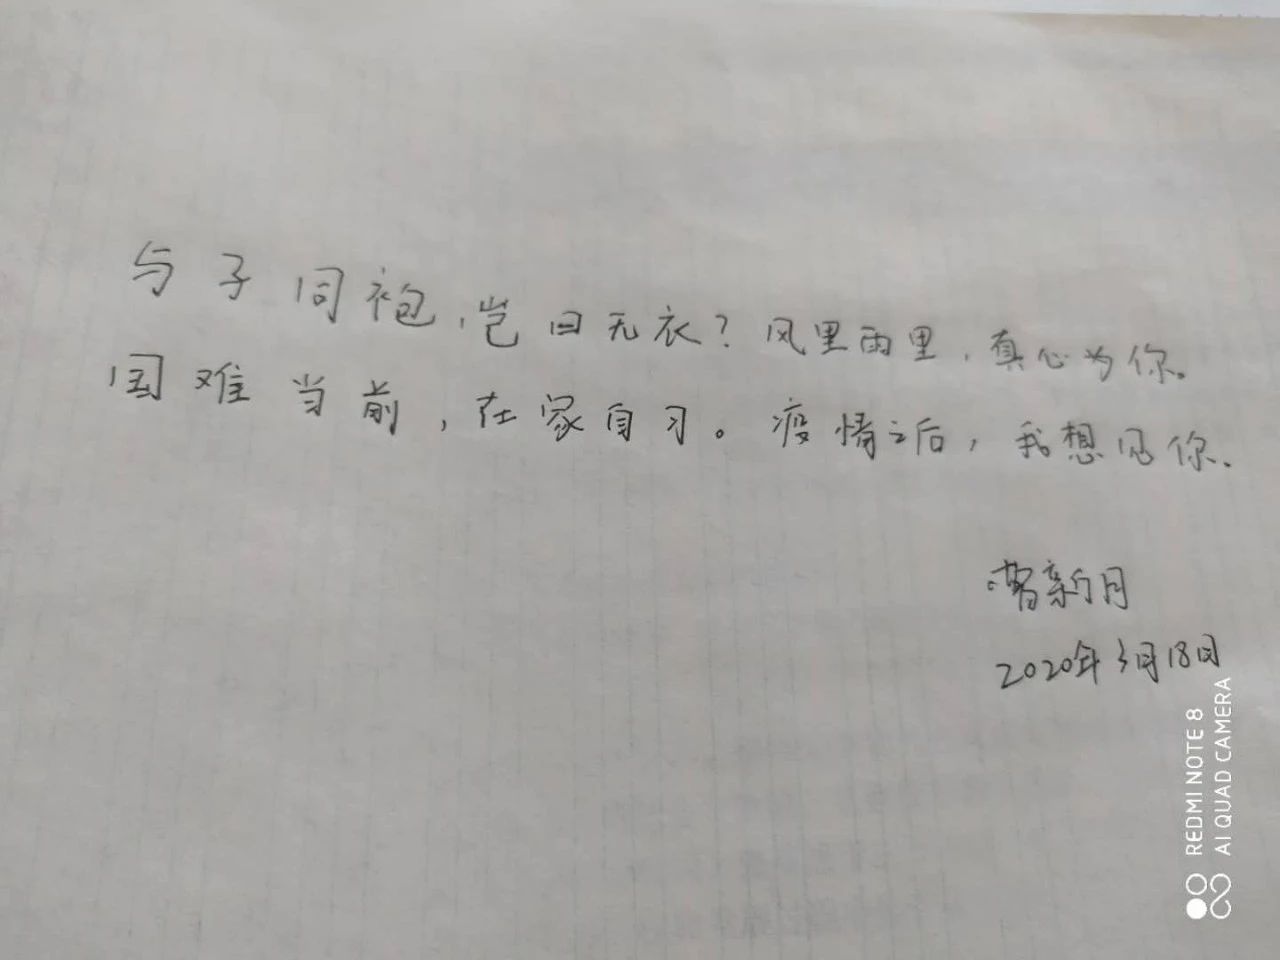 与子同袍，岂曰无衣？风里雨里，真心为你。
国难当前，在家自习。疫情之后，我想见你。
新月
2020年3月18日
REDMI NOTE 8
AI QUAD CAMERA